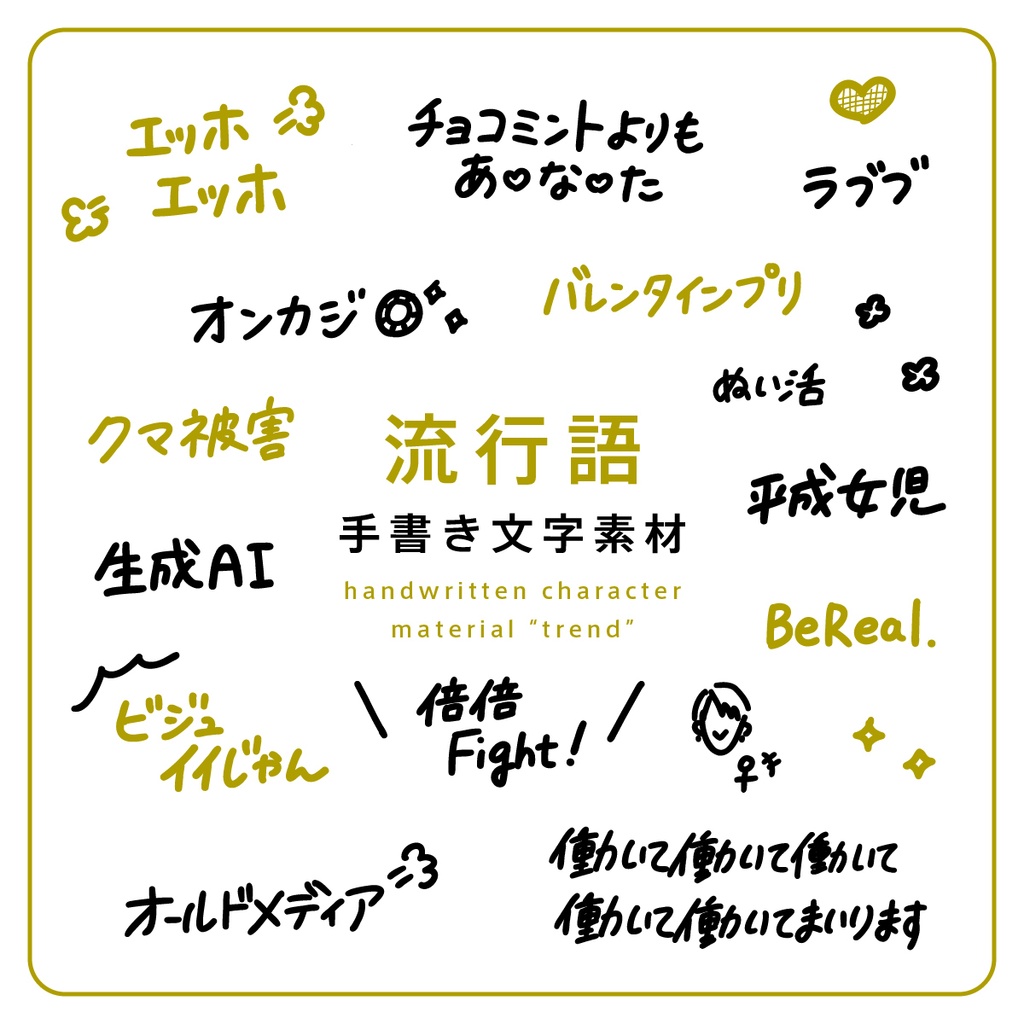 エッホ
エッホ
チョコミントよりも
あ♡な♡た
ラブブ
オンカジ
バレンタインプリ
ぬい活
クマ被害
流行語
手書き文字素材
handwritten character
material “trend”
平成女児
生成AI
BeReal.
ビジュ
イイじゃん
\ 倍倍 /
Fight!
オールドメディア
働いて働いて働いて
働いて働いてまいります